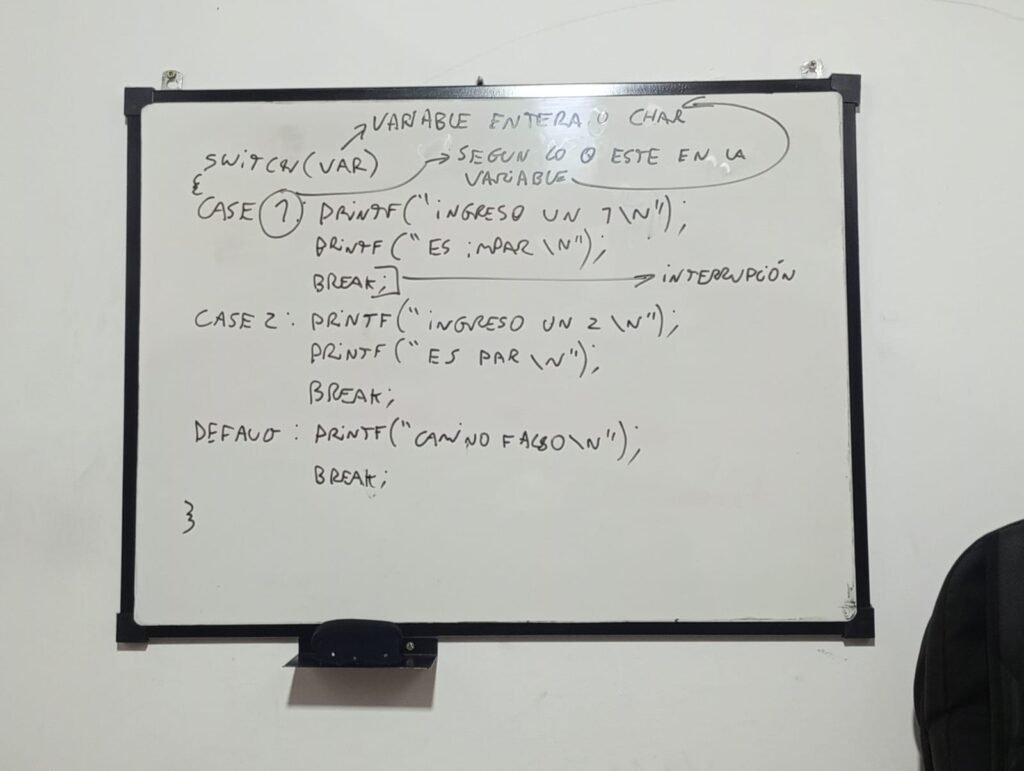 VARIABLE ENTERA O CHAR
SWITCH(VAR)
SEGUN LO Q ESTE EN LA
VARIABLE
{
CASE 1: PRINTF("INGRESO UN 1\N");
PRINTF("ES IMPAR\N");
BREAK; INTERRUPCIÓN
CASE 2: PRINTF("INGRESO UN 2\N");
PRINTF("ES PAR\N");
BREAK;
DEFAUO: PRINTF("CAMINO FALSO\N");
BREAK;
}